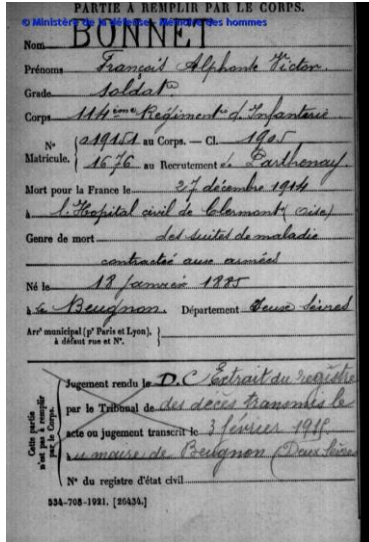 PARTIE À REMPLIR PAR LE CORPS.
© Ministère de la défense - Mémoire des hommes
Nom BONNET
Prénoms François Alphonse Victor
Grade soldat
Corps 114ème Régiment d'Infanterie
N° Matricule. { 019151 au Corps. — Cl. 1905
1676 au Recrutement de Parthenay
Mort pour la France le 27 décembre 1914
à l'Hopital civil de Clermont (Oise)
Genre de mort des suites de maladie
contractée aux armées
Né le 18 Janvier 1885
à Le Beugnon. Département Deux Sèvres
Arr† municipal (p† Paris et Lyon),
à défaut rue et N°.
Cette partie n'est pas à remplir par le Corps.
Jugement rendu le D.C Extrait du registre
par le Tribunal de des décès transmis le
acte ou jugement transcrit le 3 février 1915
au maire de Beugnon (Deux Sèvres
N° du registre d'état civil
534-708-1921. [26434.]